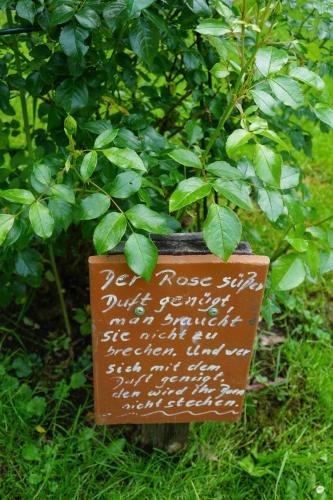 Der Rose süßer
Duft genügt,
man braucht
sie nicht zu
brechen. Und wer
sich mit dem
Duft genügt,
den wird ihr Dorn
nicht stechen.